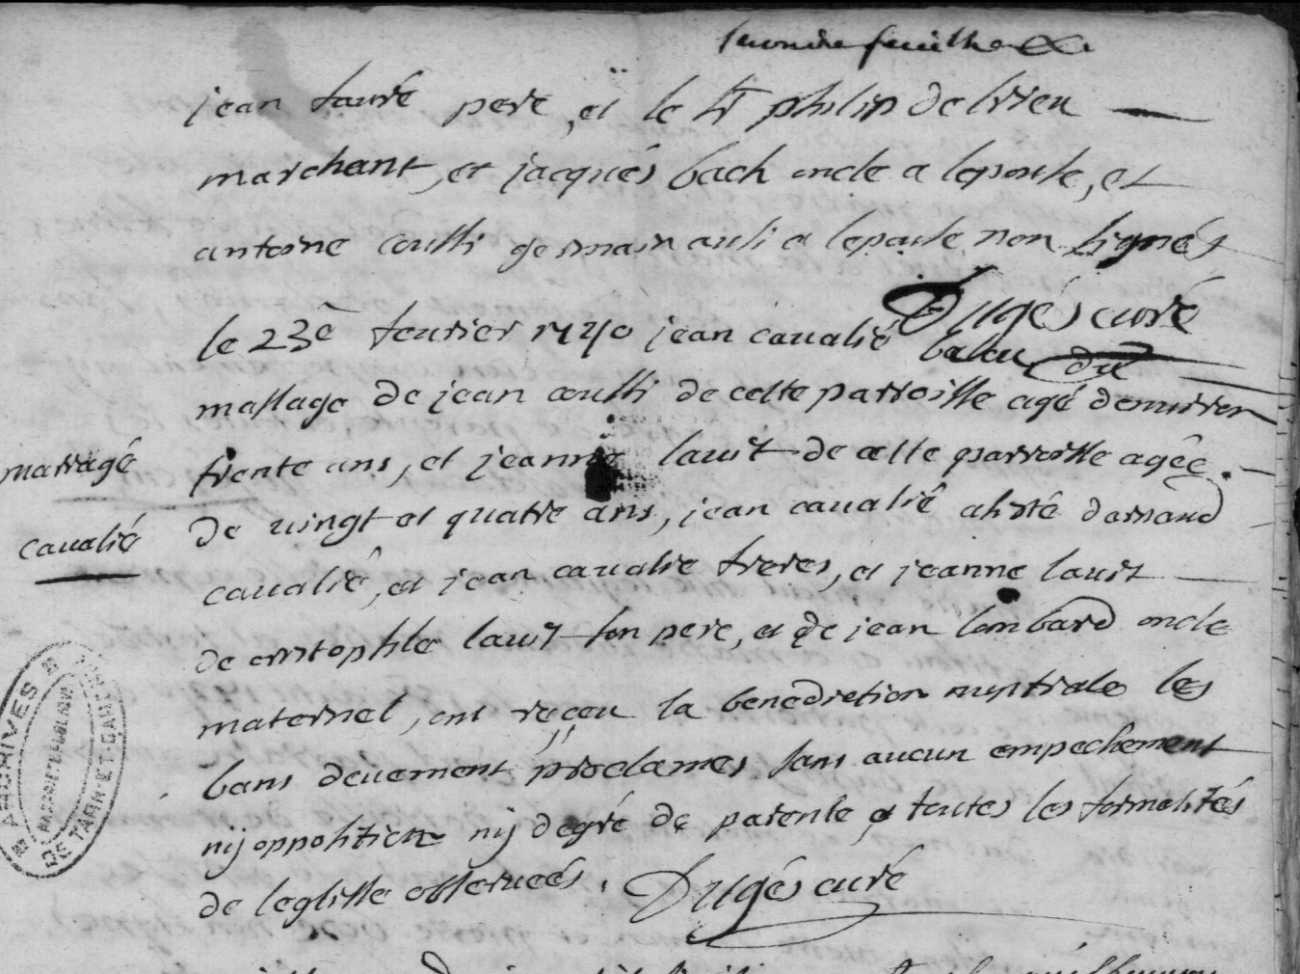 seconde feuilhe
jean faure pere, et le sr philip delrieu
marchant, et jacques bach oncle a lepouse, et
antoine coutti germain aussi a lepouse non signés
Dugés curé
le 23e feurier 1740 jean caualié valeu du
massage de jean coutti de cette parroisse agé denuiron
trente ans, et jeanne lauit de cette parroisse agée
de vingt et quatre ans, jean caualié assisté darnaud
caualié, et jean caualie freres, et jeanne lauit
de cristophle lauit son pere, et de jean lombard oncle
maternel, ont reçeu la benediction nuptiale les
bans deuement proclames sans aucun empechement
nij opposition nij degré de parente et toutes les formalités
de leglisse obseruées. Dugés curé
mariagé
caualié
ARCHIVES
DE TARN-ET-GAR
PROPRIETE PUBLIQUE